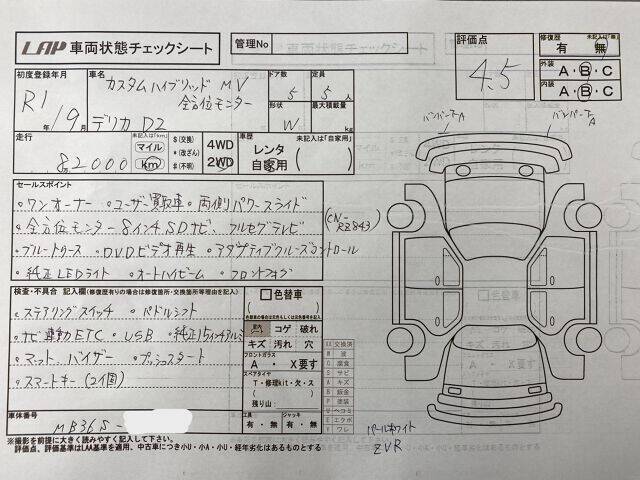 LAP 車両状態チェックシート
管理No
評価点
4.5
修復歴 未記入は「無」
有・無
外装 A・B・C
内装 A・B・C
初度登録年月
R1年 / 9月
車名
カスタムハイブリッド MV
全方位モニター
デリカ D2
ドア数
5
定員
5人
形状
W
最大積載量
kg
走行
82000
未記入は「km」
マイル
km
$(交換)
*(改ざん)
#(不明)
4WD
2WD
車歴 未記入は「自家用」
レンタ
自家用
セールスポイント
・ワンオーナー ・ユーザー買取車 ・両側パワースライド
・全方位モニター8インチSDナビ、フルセグテレビ (CN-RZ843)
・ブルートゥース ・DVDビデオ再生 ・アダプティブクルーズコントロール
・純正LEDライト ・オートハイビーム ・フロントフォグ
検査・不具合 記入欄(修復歴有りの場合は修復箇所・交換箇所等理由を記入)
・ステアリングスイッチ ・パドルシフト
・ナビ連動ETC ・USB ・純正15インチアルミ
・マット、バイザー ・プッシュスタート
・スマートキー(2個)
色替車
コゲ 破れ
キズ 汚れ 穴
フロントガラス
A ・ X要す
スペアタイヤ
T・修理kit・欠・ス
残り山:
工具
有・無
ジャッキ
有・無
XX 交換済
W 波
C 腐食
S サビ
A キズ
B 鈑金
P 塗装
U ヘコミ
E エクボ
Y ワレ
バンパーA
バンパーA
パールホワイト
ZVR
車体番号
MB36S-
※撮影を前提に大きく読みやすく記入して下さい。
評価点、評価基準はLAA基準を適用、中古車につき小U・小A・小U・経年劣化はあるものとする